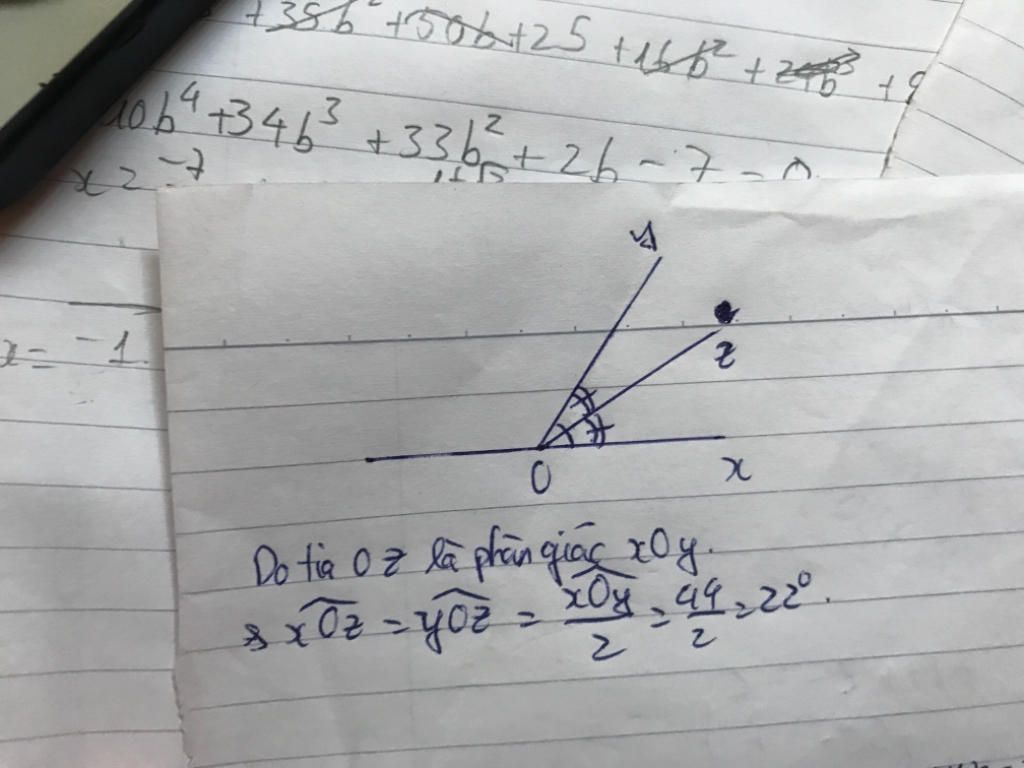 +35b² +50b+25 +16b² +
10b⁴ +34b³ +33b² + 2b - 7 = 0
x = -7
x = -1
y
z
O
x
Do tia Oz là phân giác xOy.
xOz = yOz = xOy/2 = 44/2 = 22°.